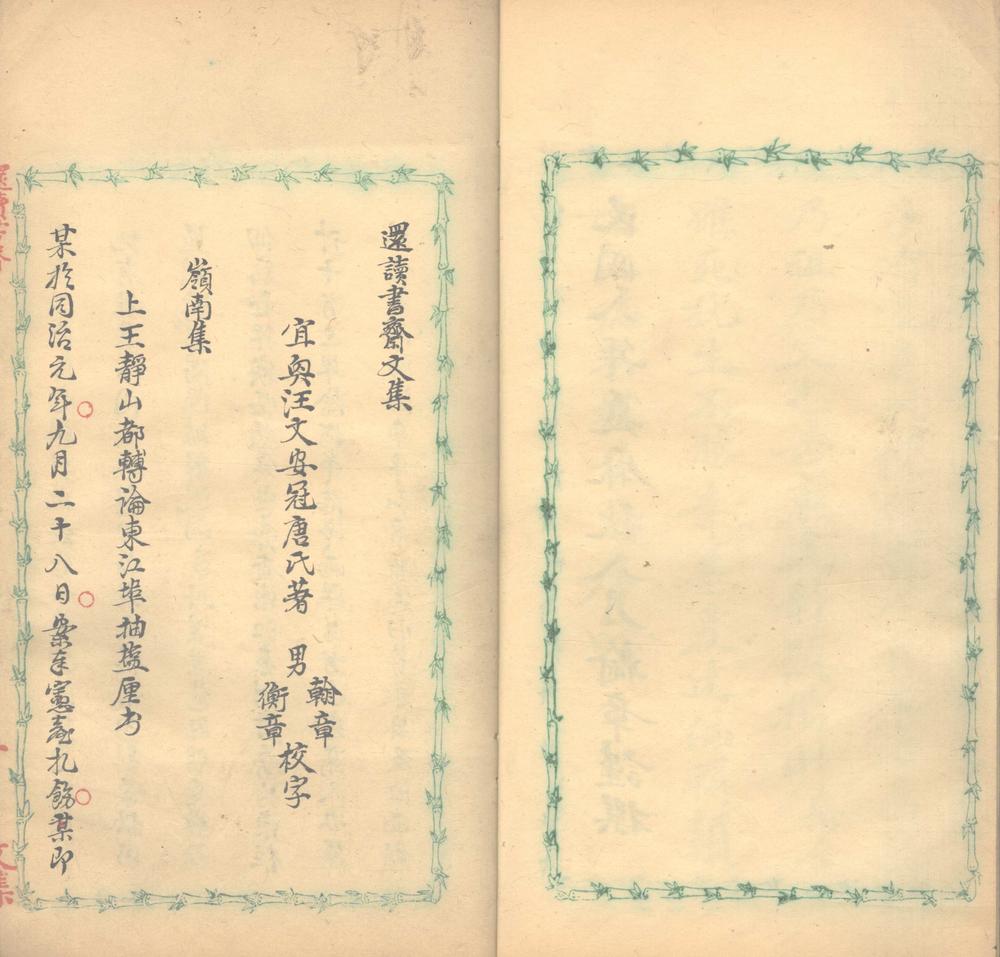 還讀書齋文集
宜興汪文安冠唐氏著　男
翰章
衡章
校字
嶺南集
上王靜山都轉論東江埠抽塩厘书
某於同治元年九月二十八日案奉憲臺札飭某即
文集